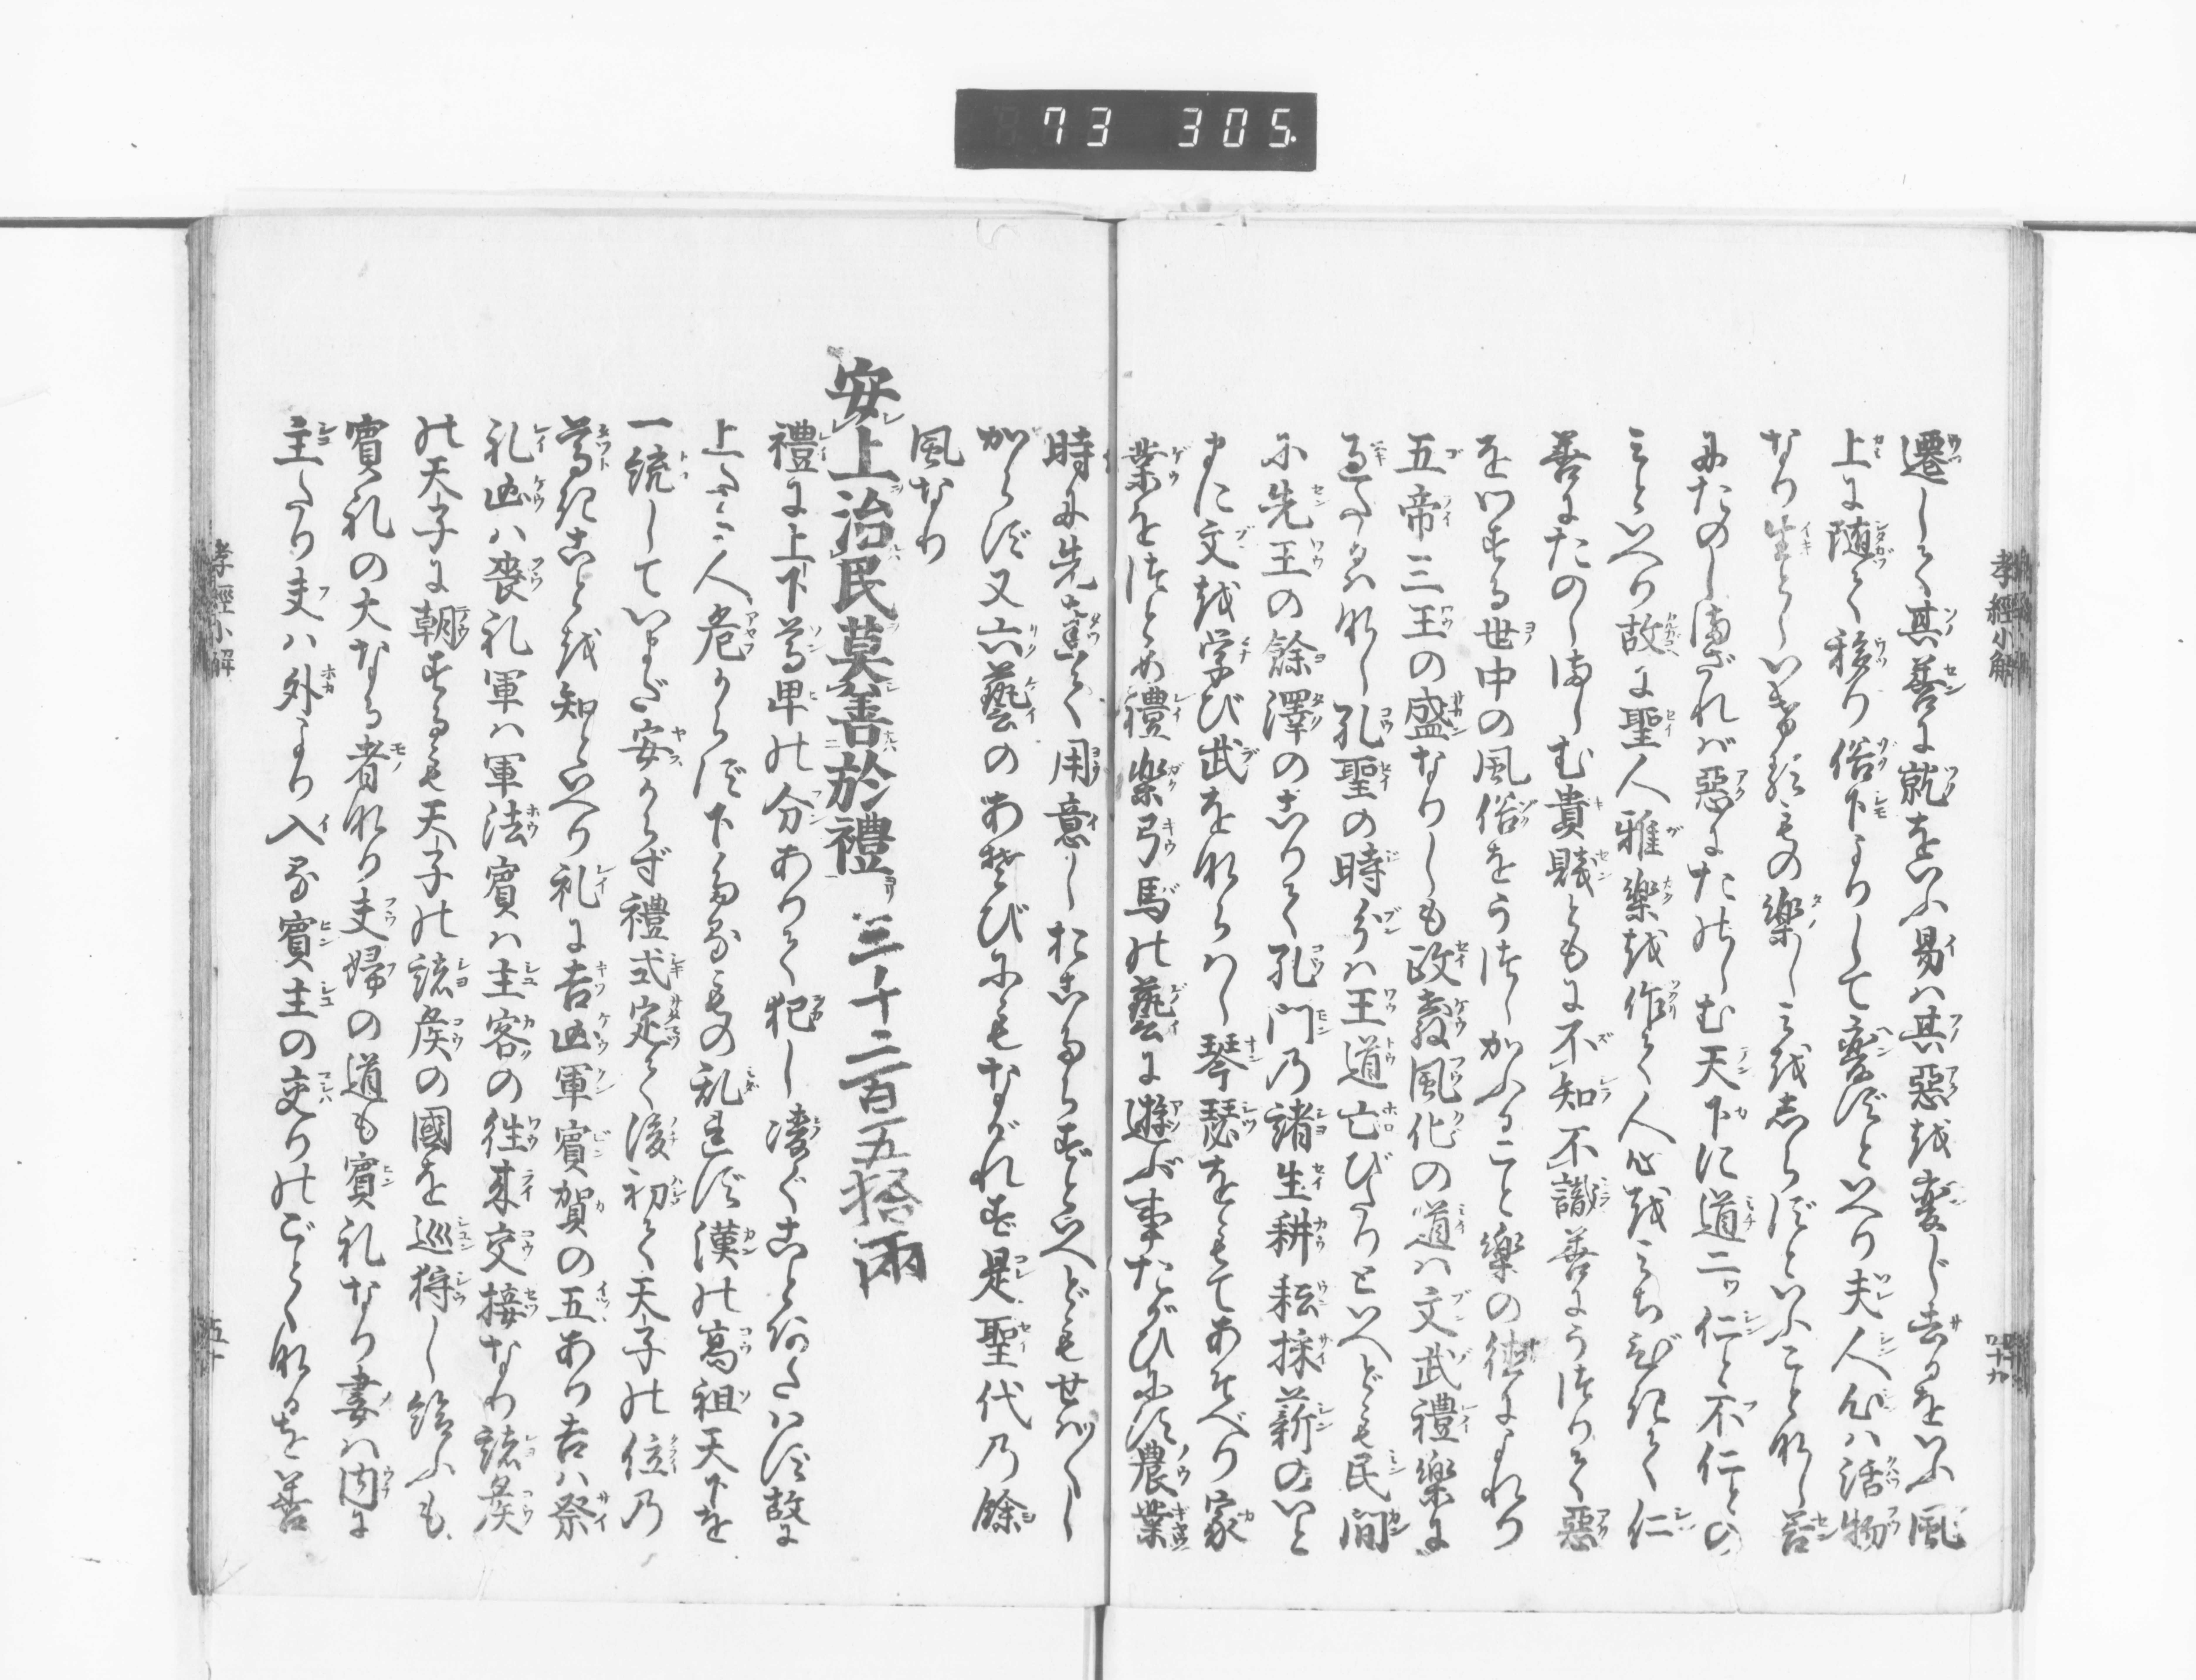 73 305.
孝經小解
四十九
遷して其善に就をいふ易ハ其惡を変じ去るをいふ風
上に随て移り俗下よりして変ずといへり夫人心ハ活物
なり生としいける物の楽しミをしらずといふことなし善
にたのしまざれバ惡にたのしむ天下に道二ツ仁と不仁との
ミといへり故に聖人雅楽を作て人心をみちびきて仁
善にたのしましむ貴賤ともに不知不識善にうつりて惡
をいとふ世中の風俗をうつしかふること楽の徳によれり
五帝三王の盛なりしも政教風化の道ハ文武禮樂に
過たるハなし孔聖の時分ハ王道亡びたりといへども民間
に先王の餘澤のこりて孔門乃諸生耕耘採薪のいと
まに文を学び武をならハし琴瑟をもてあそべり家
業をつとめ禮楽弓馬の藝に遊ぶ事たがひにす農業
時に先達て用意しおこたらずといへどもせバ〳〵し
からず又六藝のあそびにもながれず是聖代乃餘
風なり
安上治民莫善於禮 三十二百五拾両
禮に上下尊卑の分ありて犯し凌ぐことあたハず故に
上たる人危からず下たるもの乱れず漢の高祖天下を
一統していまだ安からず禮式定て後初て天子の位乃
尊きことを知といへり礼に吉凶軍賓賀の五あり吉ハ祭
礼凶ハ喪礼軍ハ軍法賓ハ主客の往来交接なり諸侯
の天子に朝するも天子の諸侯の國を巡狩し給ふも
賓礼の大なる者なり夫婦の道も賓礼なり妻ハ内に
主たり夫ハ外より入る賓主の交りのごとくなるを善
孝經小解
五十